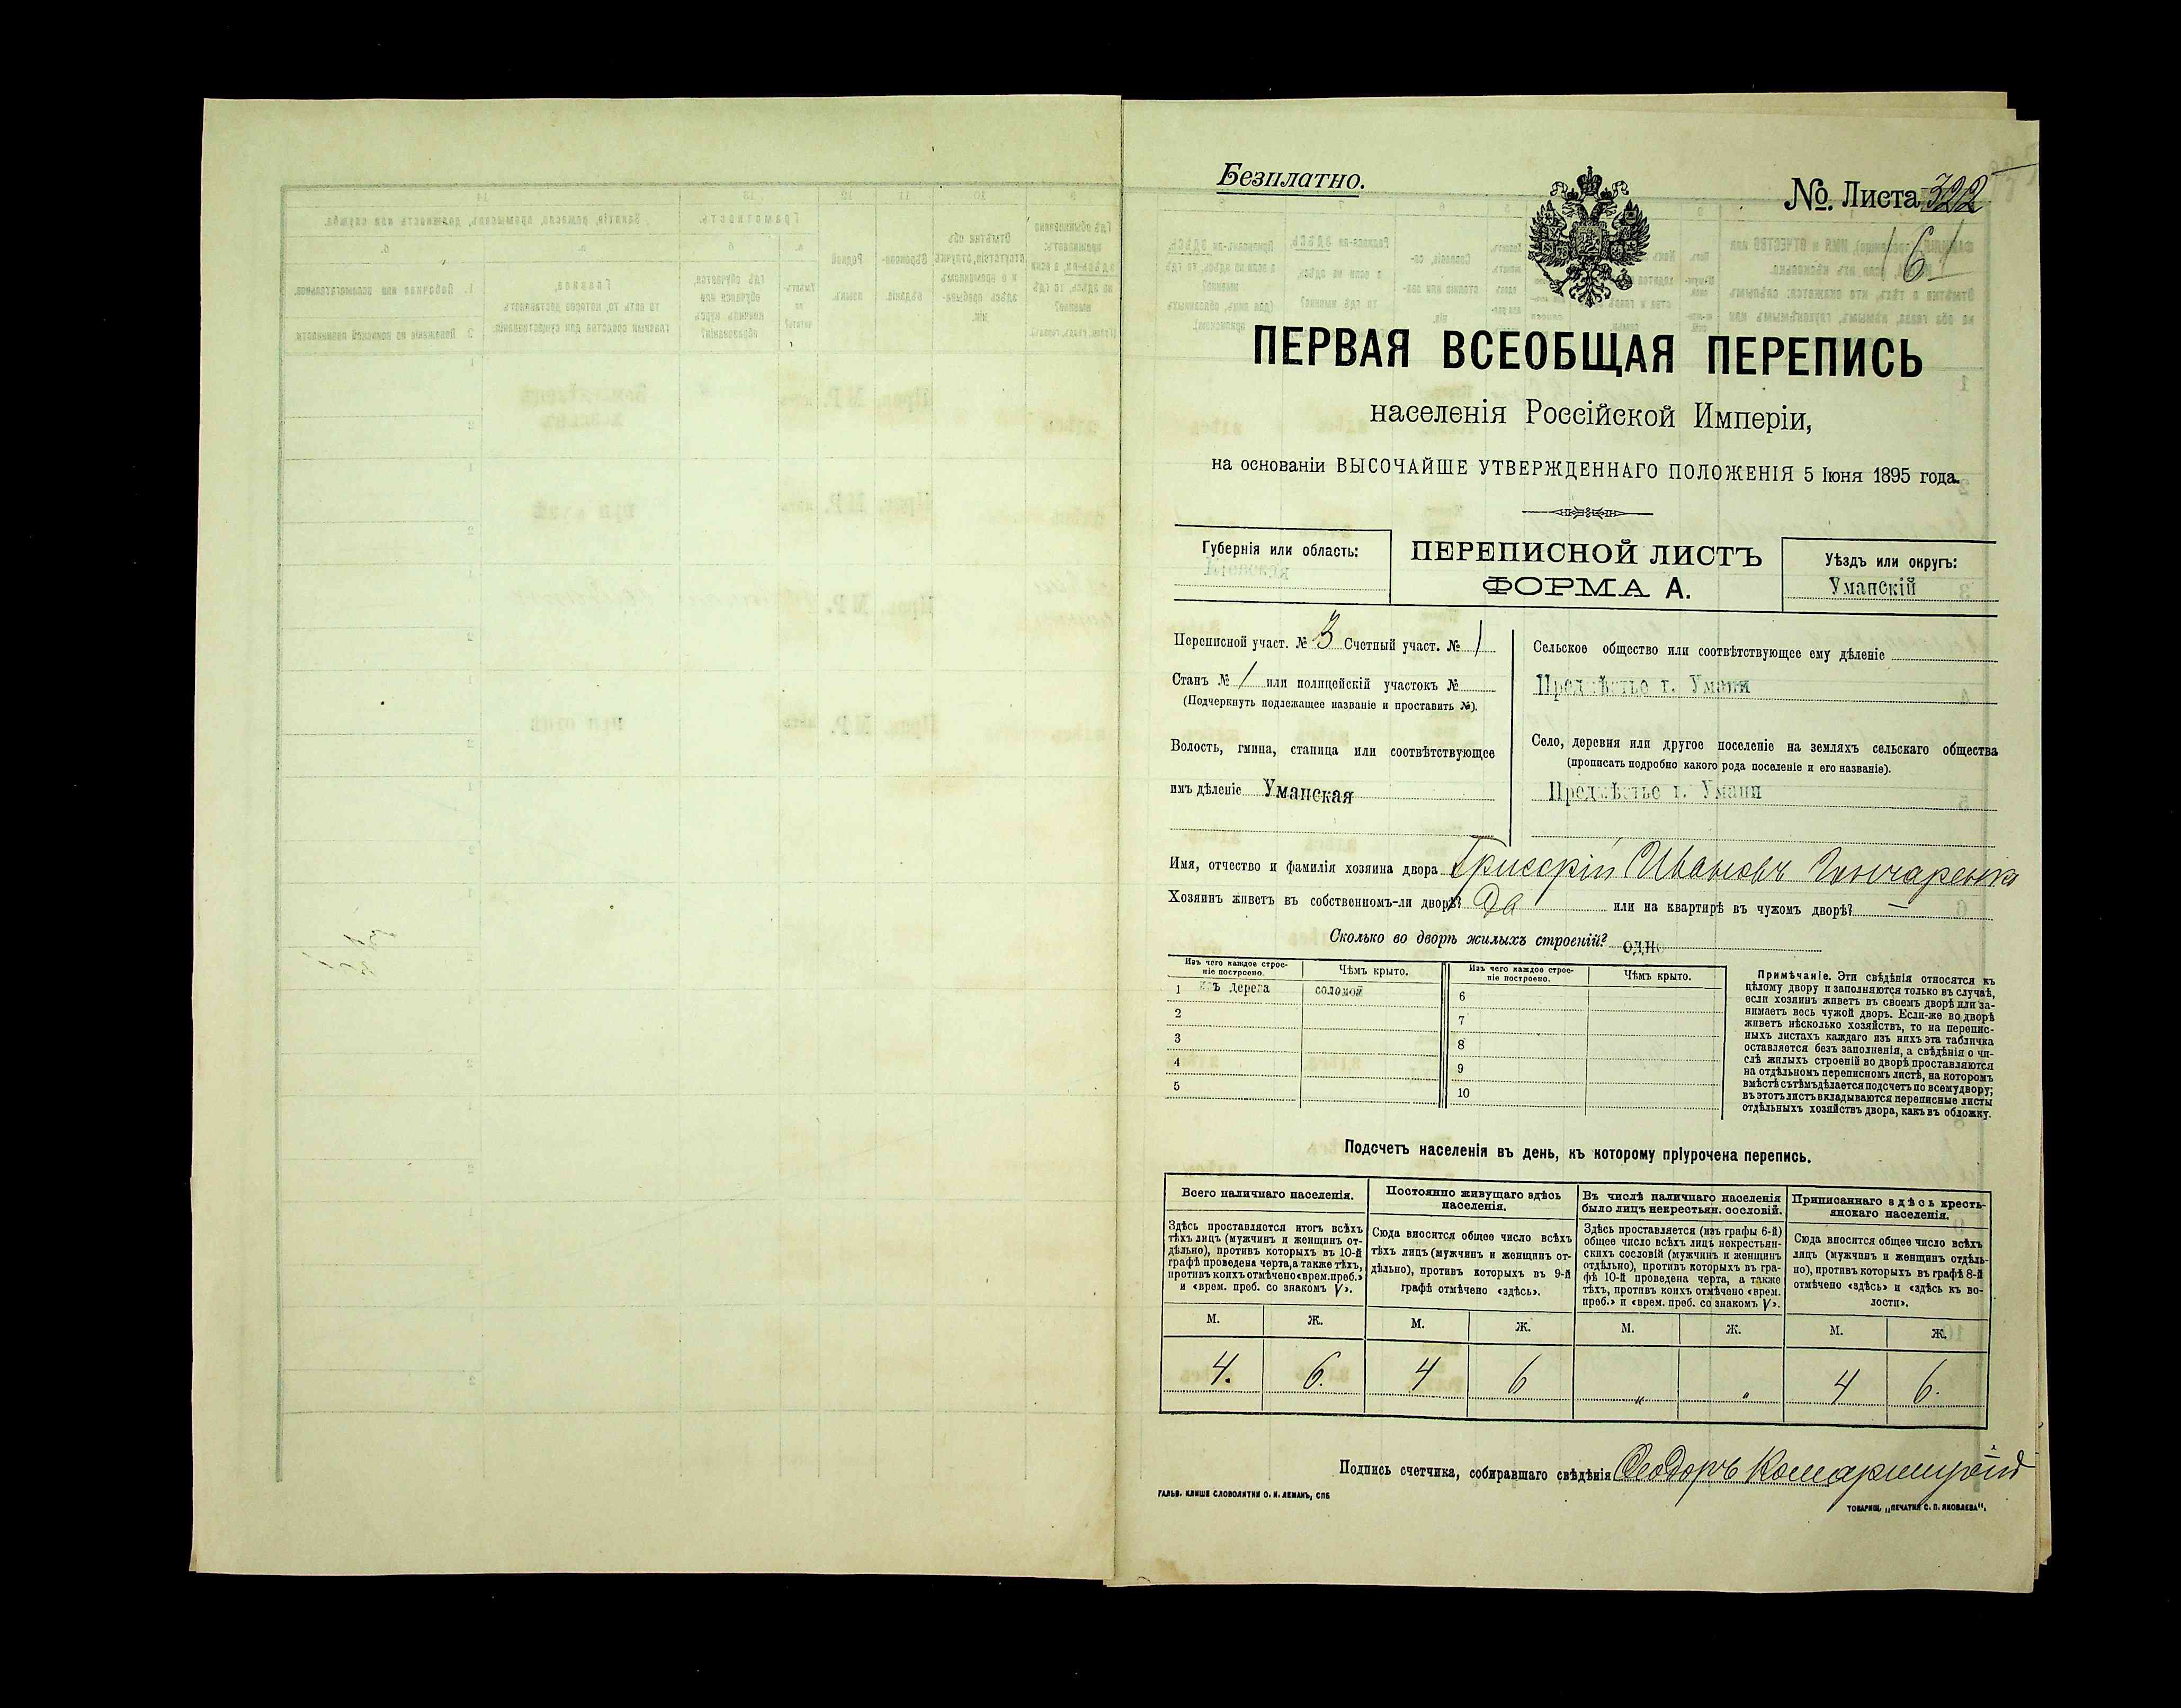 Безплатно.
№. Листа 322
161
ПЕРВАЯ ВСЕОБЩАЯ ПЕРЕПИСЬ
населенія Россійской Имперіи,
на основаніи ВЫСОЧАЙШЕ УТВЕРЖДЕННАГО ПОЛОЖЕНІЯ 5 Іюня 1895 года.
Губернія или область:
Кіевская
ПЕРЕПИСНОЙ ЛИСТЪ
ФОРМА А.
Уѣздъ или округъ:
Уманскій
Переписной участ. № 3 Счетный участ. № 1
Станъ № 1 или полицейскій участокъ №
(Подчеркнуть подлежащее названіе и проставить №).
Волость, гмина, станица или соотвѣтствующее
имъ дѣленіе Уманская
Сельское общество или соотвѣтствующее ему дѣленіе
Предмѣстье г. Умани
Село, деревня или другое поселеніе на земляхъ сельскаго общества
(прописать подробно какого рода поселеніе и его названіе).
Предмѣстье г. Умани
Имя, отчество и фамилія хозяина двора Григорій Ивановъ Гончаренко
Хозяинъ живетъ въ собственномъ-ли дворѣ? Да или на квартирѣ въ чужомъ дворѣ? —
Сколько во дворѣ жилыхъ строеній? одно
Изъ чего каждое строе-
ніе построено.
Чѣмъ крыто.
Изъ чего каждое строе-
ніе построено.
Чѣмъ крыто.
1 изъ дерева соломой 6
2 7
3 8
4 9
5 10
Примѣчаніе. Эти свѣдѣнія относятся къ
цѣлому двору и заполняются только въ случаѣ,
если хозяинъ живетъ въ своемъ дворѣ или за-
нимаетъ весь чужой дворъ. Если-же во дворѣ
живетъ нѣсколько хозяйствъ, то на перепис-
ныхъ листахъ каждаго изъ нихъ эта табличка
оставляется безъ заполненія, а свѣдѣнія о чи-
слѣ жилыхъ строеній во дворѣ проставляются
на отдѣльномъ переписномъ листѣ, на которомъ
вмѣстѣ съ тѣмъ дѣлается подсчетъ по всему двору;
въ этотъ листъ вкладываются переписные листы
отдѣльныхъ хозяйствъ двора, какъ въ обложку.
Подсчетъ населенія въ день, къ которому пріурочена перепись.
Всего наличнаго населенія.
Здѣсь проставляется итогъ всѣхъ
тѣхъ лицъ (мужчинъ и женщинъ от-
дѣльно), противъ которыхъ въ 10-й
графѣ проведена черта, а также тѣхъ,
противъ коихъ отмѣчено «врем. преб.»
и «врем. преб. со знакомъ V».
Постоянно живущаго здѣсь
населенія.
Сюда вносится общее число всѣхъ
тѣхъ лицъ (мужчинъ и женщинъ от-
дѣльно), противъ которыхъ въ 9-й
графѣ отмѣчено «здѣсь».
Въ числѣ наличнаго населенія
было лицъ некрестьян. сословій.
Здѣсь проставляется (изъ графы 6-й)
общее число всѣхъ лицъ некрестьян-
скихъ сословій (мужчинъ и женщинъ
отдѣльно), противъ которыхъ въ гра-
фѣ 10-й проведена черта, а также
тѣхъ, противъ коихъ отмѣчено «врем.
преб.» и «врем. преб. со знакомъ V».
Приписаннаго здѣсь кресть-
янскаго населенія.
Сюда вносится общее число всѣхъ
лицъ (мужчинъ и женщинъ отдѣль-
но), противъ которыхъ въ графѣ 8-й
отмѣчено «здѣсь» и «здѣсь къ во-
лости».
М. Ж. М. Ж. М. Ж. М. Ж.
4. 6. 4 6 " " 4 6.
Подпись счетчика, собиравшаго свѣдѣнія Ѳеодоръ Комарницкій
ГАЛЬВ. КЛИШЕ СЛОВОЛИТНИ О. И. ЛЕМАНЪ, СПБ
ТОВАРИЩ. „ПЕЧАТНЯ С. П. ЯКОВЛЕВА“.